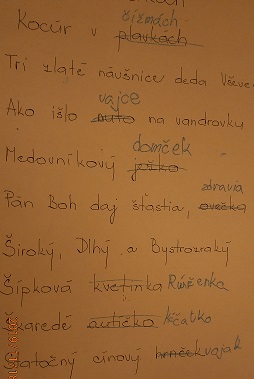 čižmách
Kocúr v plavkách
Tri zlaté náušnice deda Vševe
vajce
Ako išlo auto na vandrovku
domček
Medovníkový ježko
zdravia
Pán Boh daj šťastia, ovečka
Široký, Dlhý a Bystrozraký
Šípková kvetinka Růženka
Škaredé autíčko Káčatko
Statočný cínový hrnček vojak